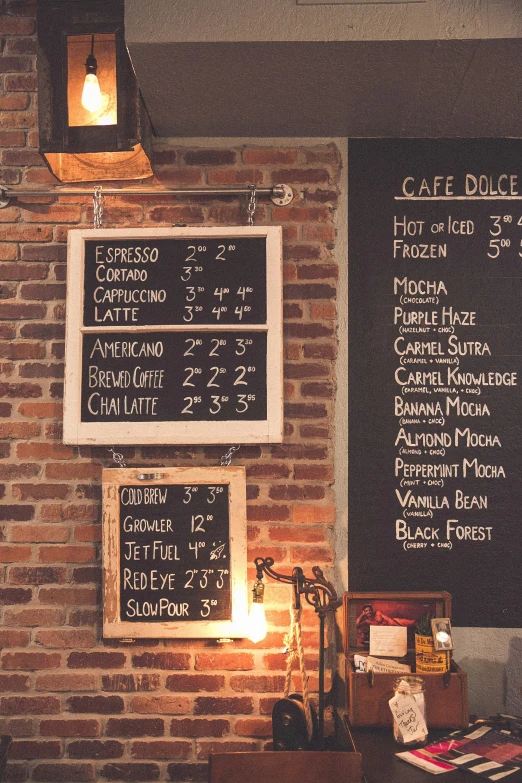 ESPRESSO 2⁰⁰ 2⁸⁰
CORTADO 3³⁰
CAPPUCCINO 3³⁰ 4⁰⁰ 4⁶⁰
LATTE 3³⁰ 4⁰⁰ 4⁶⁰
AMERICANO 2⁰⁰ 2⁸⁰ 3³⁰
BREWED COFFEE 2⁰⁰ 2⁵⁰ 2⁸⁰
CHAI LATTE 2⁹⁵ 3⁵⁰ 3⁹⁵
COLD BREW 3⁰⁰ 3⁵⁰
GROWLER 12⁰⁰
JET FUEL 4⁰⁰
RED EYE
SLOW POUR 3⁵⁰
CAFE DOLCE
HOT OR ICED 3⁹⁰
FROZEN 5⁰⁰
MOCHA
(CHOCOLATE)
PURPLE HAZE
(HAZELNUT + CHOC)
CARMEL SUTRA
(CARAMEL + VANILLA)
CARMEL KNOWLEDGE
(CARAMEL, VANILLA, + CHOC)
BANANA MOCHA
(BANANA + CHOC)
ALMOND MOCHA
(ALMOND + CHOC)
PEPPERMINT MOCHA
(MINT + CHOC)
VANILLA BEAN
(VANILLA)
BLACK FOREST
(CHERRY + CHOC)